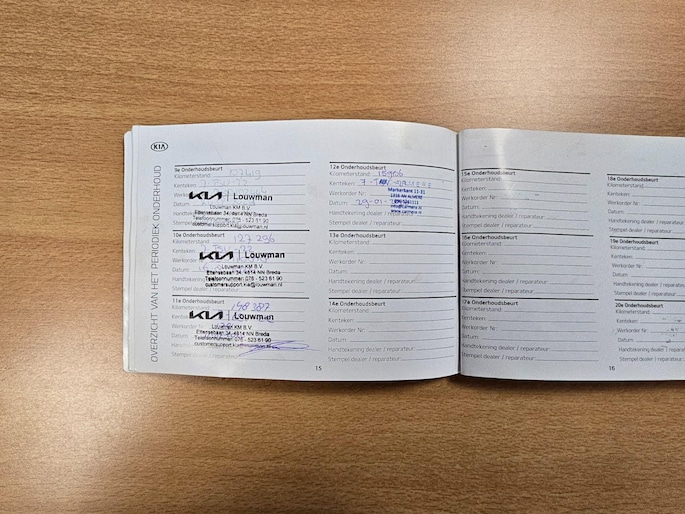 KIA
OVERZICHT VAN HET PERIODIEK ONDERHOUD
9e Onderhoudsbeurt
Kilometerstand
Kenteken
Werkorder
Datum
Handtekening
Stempel dealer
KIA | Louwman
Louwman KM B.V.
Ettensebaan 34, 4814 NN Breda
Telefoonnummer: 076 - 523 61 90
10e Onderhoudsbeurt
Kilometerstand 127 296
Kenteken
Werkorder
Datum
Handtekening
Stempel dealer / reparateur
KIA | Louwman
Louwman KM B.V.
Ettensebaan 34, 4814 NN Breda
Telefoonnummer: 076 - 523 61 90
customersupport.kia@louwman.nl
11e Onderhoudsbeurt
Kilometerstand 148 387
Kenteken
Werkorder
Datum
Stempel dealer / reparateur
KIA | Louwman
Louwman KM B.V.
Ettensebaan 34, 4814 NN Breda
Telefoonnummer: 076 - 523 61 90
12e Onderhoudsbeurt
Kilometerstand
Kenteken
Werkorder Nr.
Datum
Handtekening dealer / reparateur
Stempel dealer / reparateur
13e Onderhoudsbeurt
Kilometerstand
Kenteken
Werkorder Nr.
Datum
Handtekening dealer / reparateur
Stempel dealer / reparateur
14e Onderhoudsbeurt
Kilometerstand
Kenteken
Werkorder Nr.
Datum
Handtekening dealer / reparateur
Stempel dealer / reparateur
15
15e Onderhoudsbeurt
Kilometerstand
Kenteken
Werkorder Nr.
Datum
Handtekening dealer / reparateur
Stempel dealer / reparateur
16e Onderhoudsbeurt
Kilometerstand
Kenteken
Werkorder Nr.
Datum
Handtekening dealer / reparateur
Stempel dealer / reparateur
17e Onderhoudsbeurt
Kilometerstand
Kenteken
Werkorder Nr.
Datum
Handtekening dealer / reparateur
Stempel dealer / reparateur
18e Onderhoudsbeurt
Kilometerstand
Kenteken
Werkorder Nr.
Datum
Handtekening dealer / reparateur
Stempel dealer / reparateur
19e Onderhoudsbeurt
Kilometerstand
Kenteken
Werkorder Nr.
Datum
Handtekening dealer / reparateur
Stempel dealer / reparateur
20e Onderhoudsbeurt
Kilometerstand
Kenteken
Werkorder Nr.
Datum
Handtekening dealer / reparateur
Stempel dealer / reparateur
16